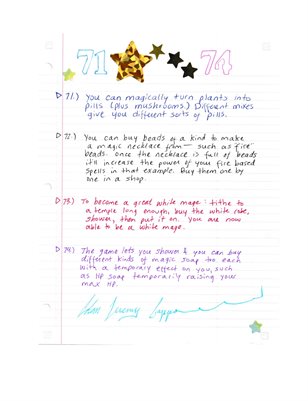 71 74
71.) You can magically turn plants into
pills (plus mushrooms.) Different mixes
give you different sorts of pills.
72.) You can buy beads of a kind to make
a magic necklace from — such as fire
beads. Once the necklace is full of beads
it'll increase the power of your fire based
spells in that example. Buy them one by
one in a shop.
73) To become a great white mage: tithe to
a temple long enough, buy the white robe,
shower, then put it on. You are now
able to be a white mage.
74.) The game lets you shower & you can buy
different kinds of magic soap too each
with a temporary effect on you, such
as HP soap temporarily raising your
max HP.
Jeremy